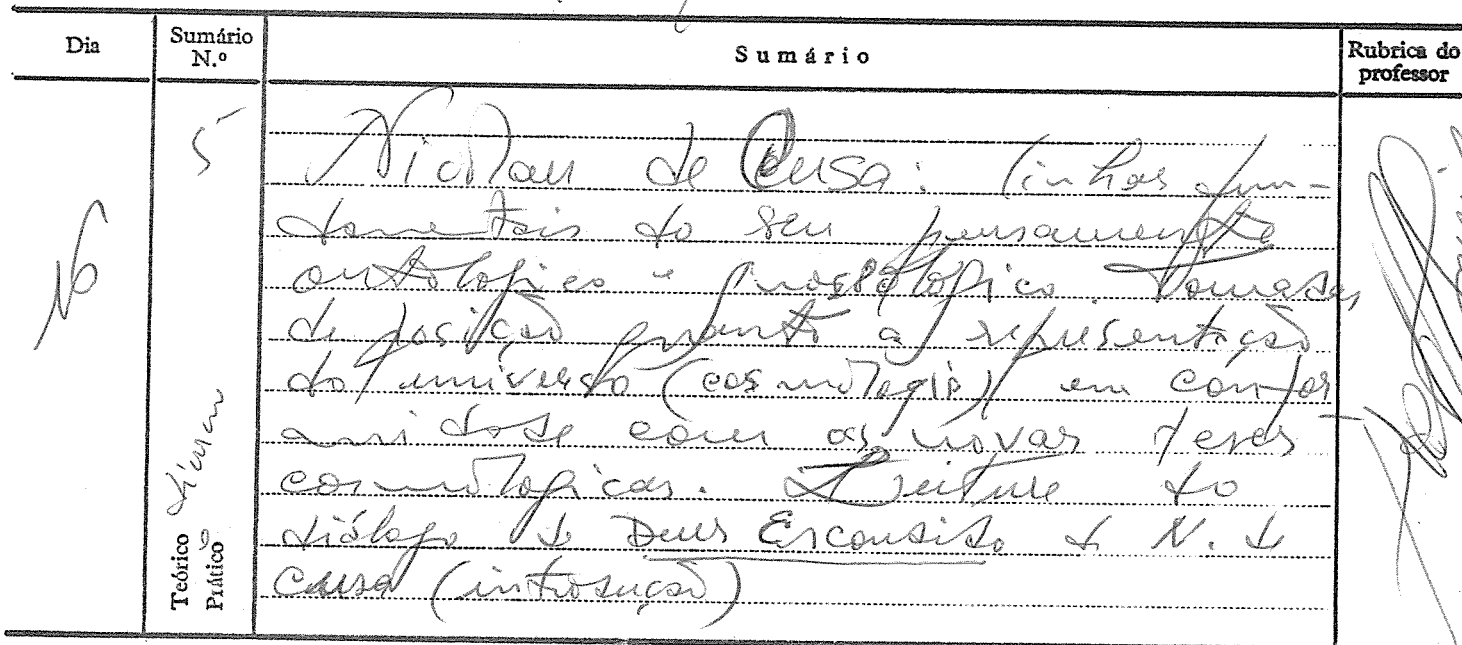 Dia
Sumário N.º
Sumário
Rubrica do professor
16
5
Nicolau de Cusa: linhas fun-
damentais do seu pensamento
ontológico e gnosiológico. Tomadas
de posição quanto à representação
do universo (cosmologia) em confor
midade com as novas teses
cosmológicas. Leitura do
diálogo do Deus Escondido de N. de
Cusa (introdução)
Teórico
Prático